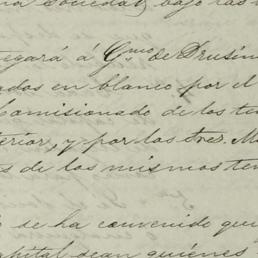 sociedad, bajo las
egará á Gmo de Prusin
ados en blanco por el
Comisionado de los te
terior, y por los tres. M
es de los mismos ten
se ha convenido que
apital sean quiénes